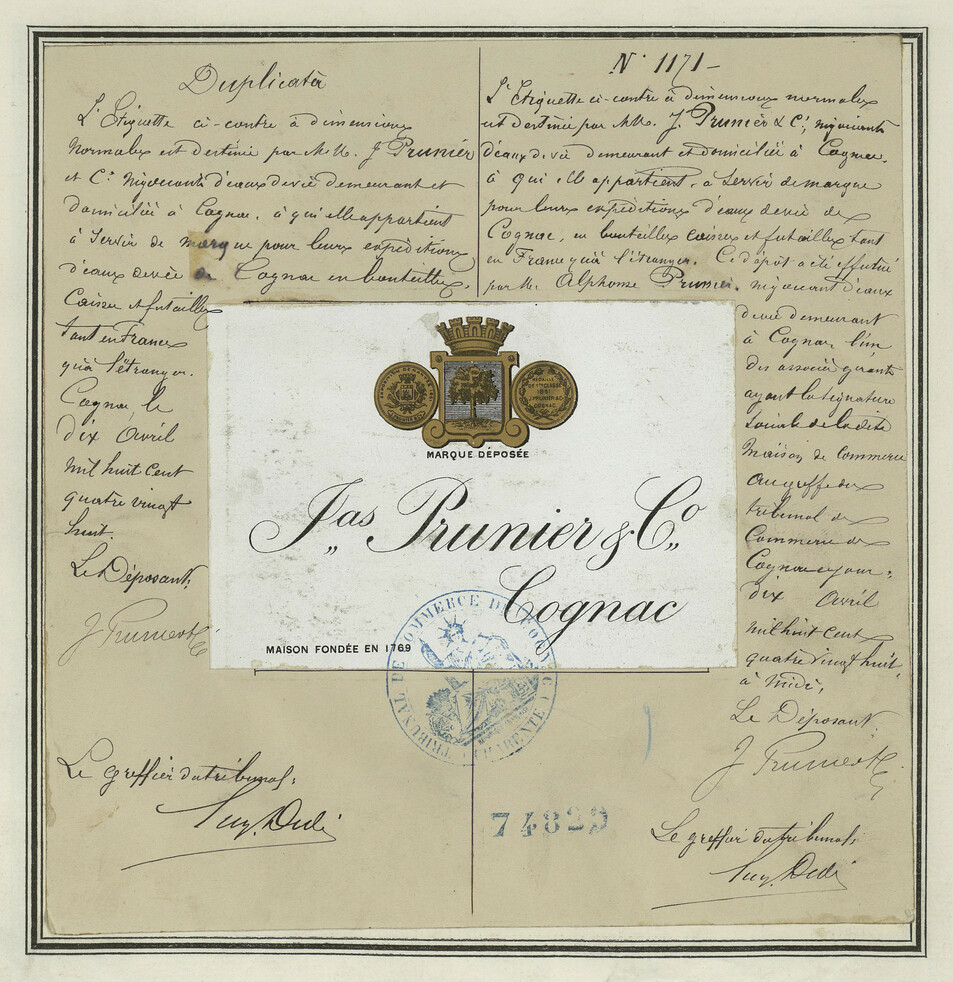 Duplicata
L'Etiquette ci-contre à dimensions
normales est destinée par M.M. J Prunier
et Cie Négociants d'eaux de vie demeurant et
domiciliés à Cognac, à qui elle appartient
à servir de marque pour leurs expéditions
d'eaux de vie de Cognac en bouteilles,
Caisses et futailles
tant en France
qu'à l'étranger.
Cognac, le
dix Avril
mil huit cent
quatre vingt
huit.
Le Déposant,
J Prunier & Cie
Le greffier du tribunal:
N° 1171-
L'Etiquette ci-contre à dimensions normales
est destinée par MM. J. Prunier & Cie, négociants
d'eaux de vie demeurant et domiciliés à Cognac,
à qui elle appartient, à servir de marque
pour leurs expéditions d'eaux de vie de
Cognac, en bouteilles caisses et futailles tant
en France qu'à l'étranger. Ce dépôt a été effectué
par M. Alphonse Prunier, négociant d'eaux
de vie demeurant
à Cognac l'un
des associés gérants
ayant la signature
sociale de la dite
Maison de Commerce
au greffe du
tribunal de
Commerce de
Cognac ce jour,
dix Avril
mil huit cent
quatre vingt huit,
à midi,
Le Déposant
J Prunier & Cie
Le greffier du tribunal:
MARQUE DÉPOSÉE
Jas Prunier & Co
Cognac
MAISON FONDÉE EN 1769
MEDAILLE
DE 1RE CLASSE
J. PRUNIER & CO
COGNAC
TRIBUNAL DE COMMERCE DE COGNAC (CHARENTE)
74829